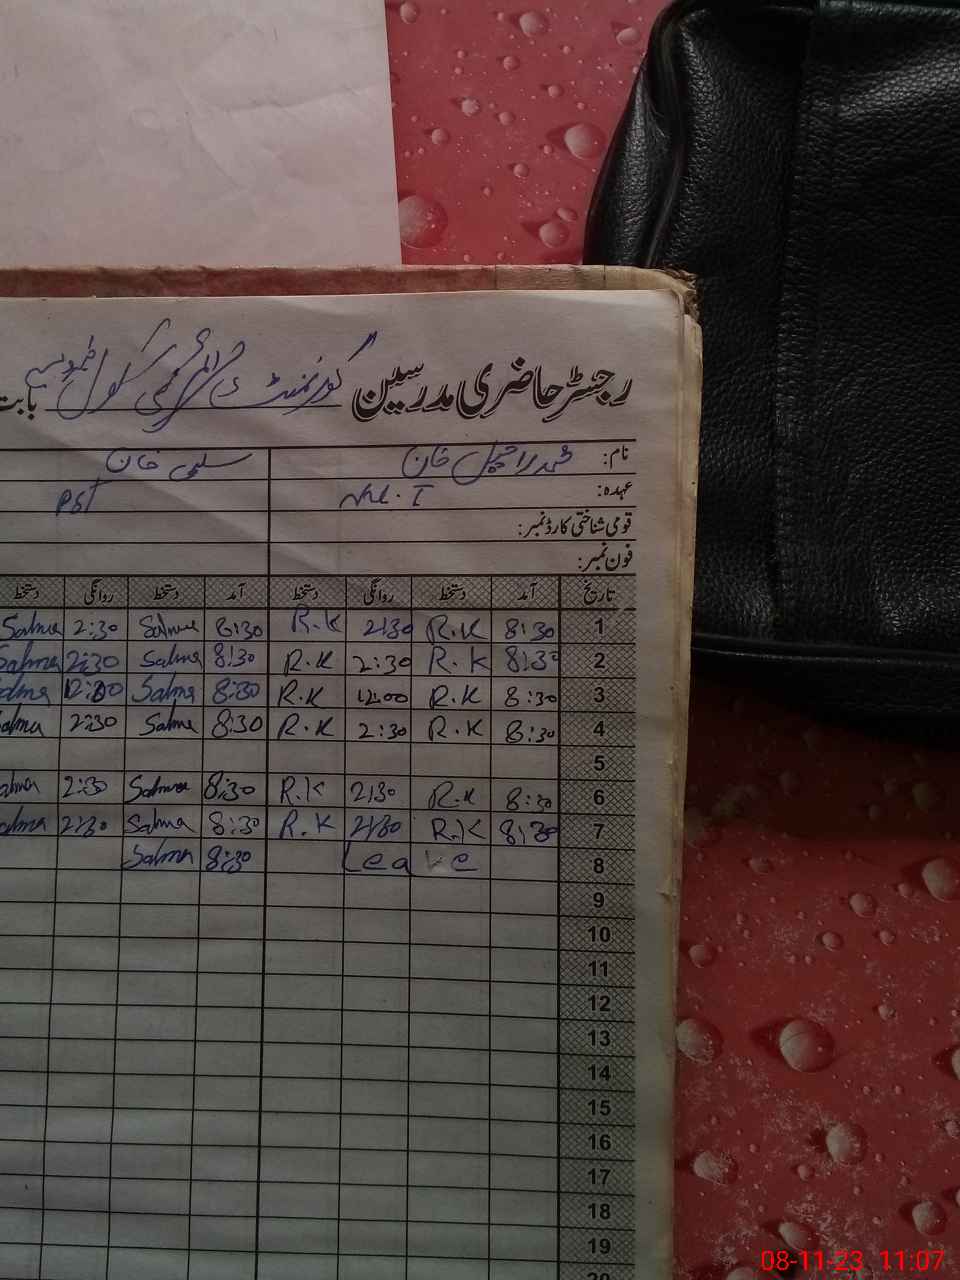 رجسٹر حاضری مدرسین گورنمنٹ پرائمری سکول بابت
نام: خان سلمی خان
عہدہ: PST
قومی شناختی کارڈ نمبر:
فون نمبر:
تاریخ آمد دستخط روانگی دستخط آمد دستخط روانگی دستخط
1 8:30 R.K 2:30 R.K 8:30 Salma 2:30 Salma
2 8:30 R.K 2:30 R.K 8:30 Salma 2:30 Salma
3 8:30 R.K 12:00 R.K 8:30 Salma 12:00 Salma
4 8:30 R.K 2:30 R.K 8:30 Salma 2:30 Salma
5
6 8:30 R.K 2:30 R.K 8:30 Salma 2:30 Salma
7 8:30 R.K 2:30 R.K 8:30 Salma 2:30 Salma
8 Leave 8:30 Salma
9
10
11
12
13
14
15
16
17
18
19
20
08-11-23 11:07